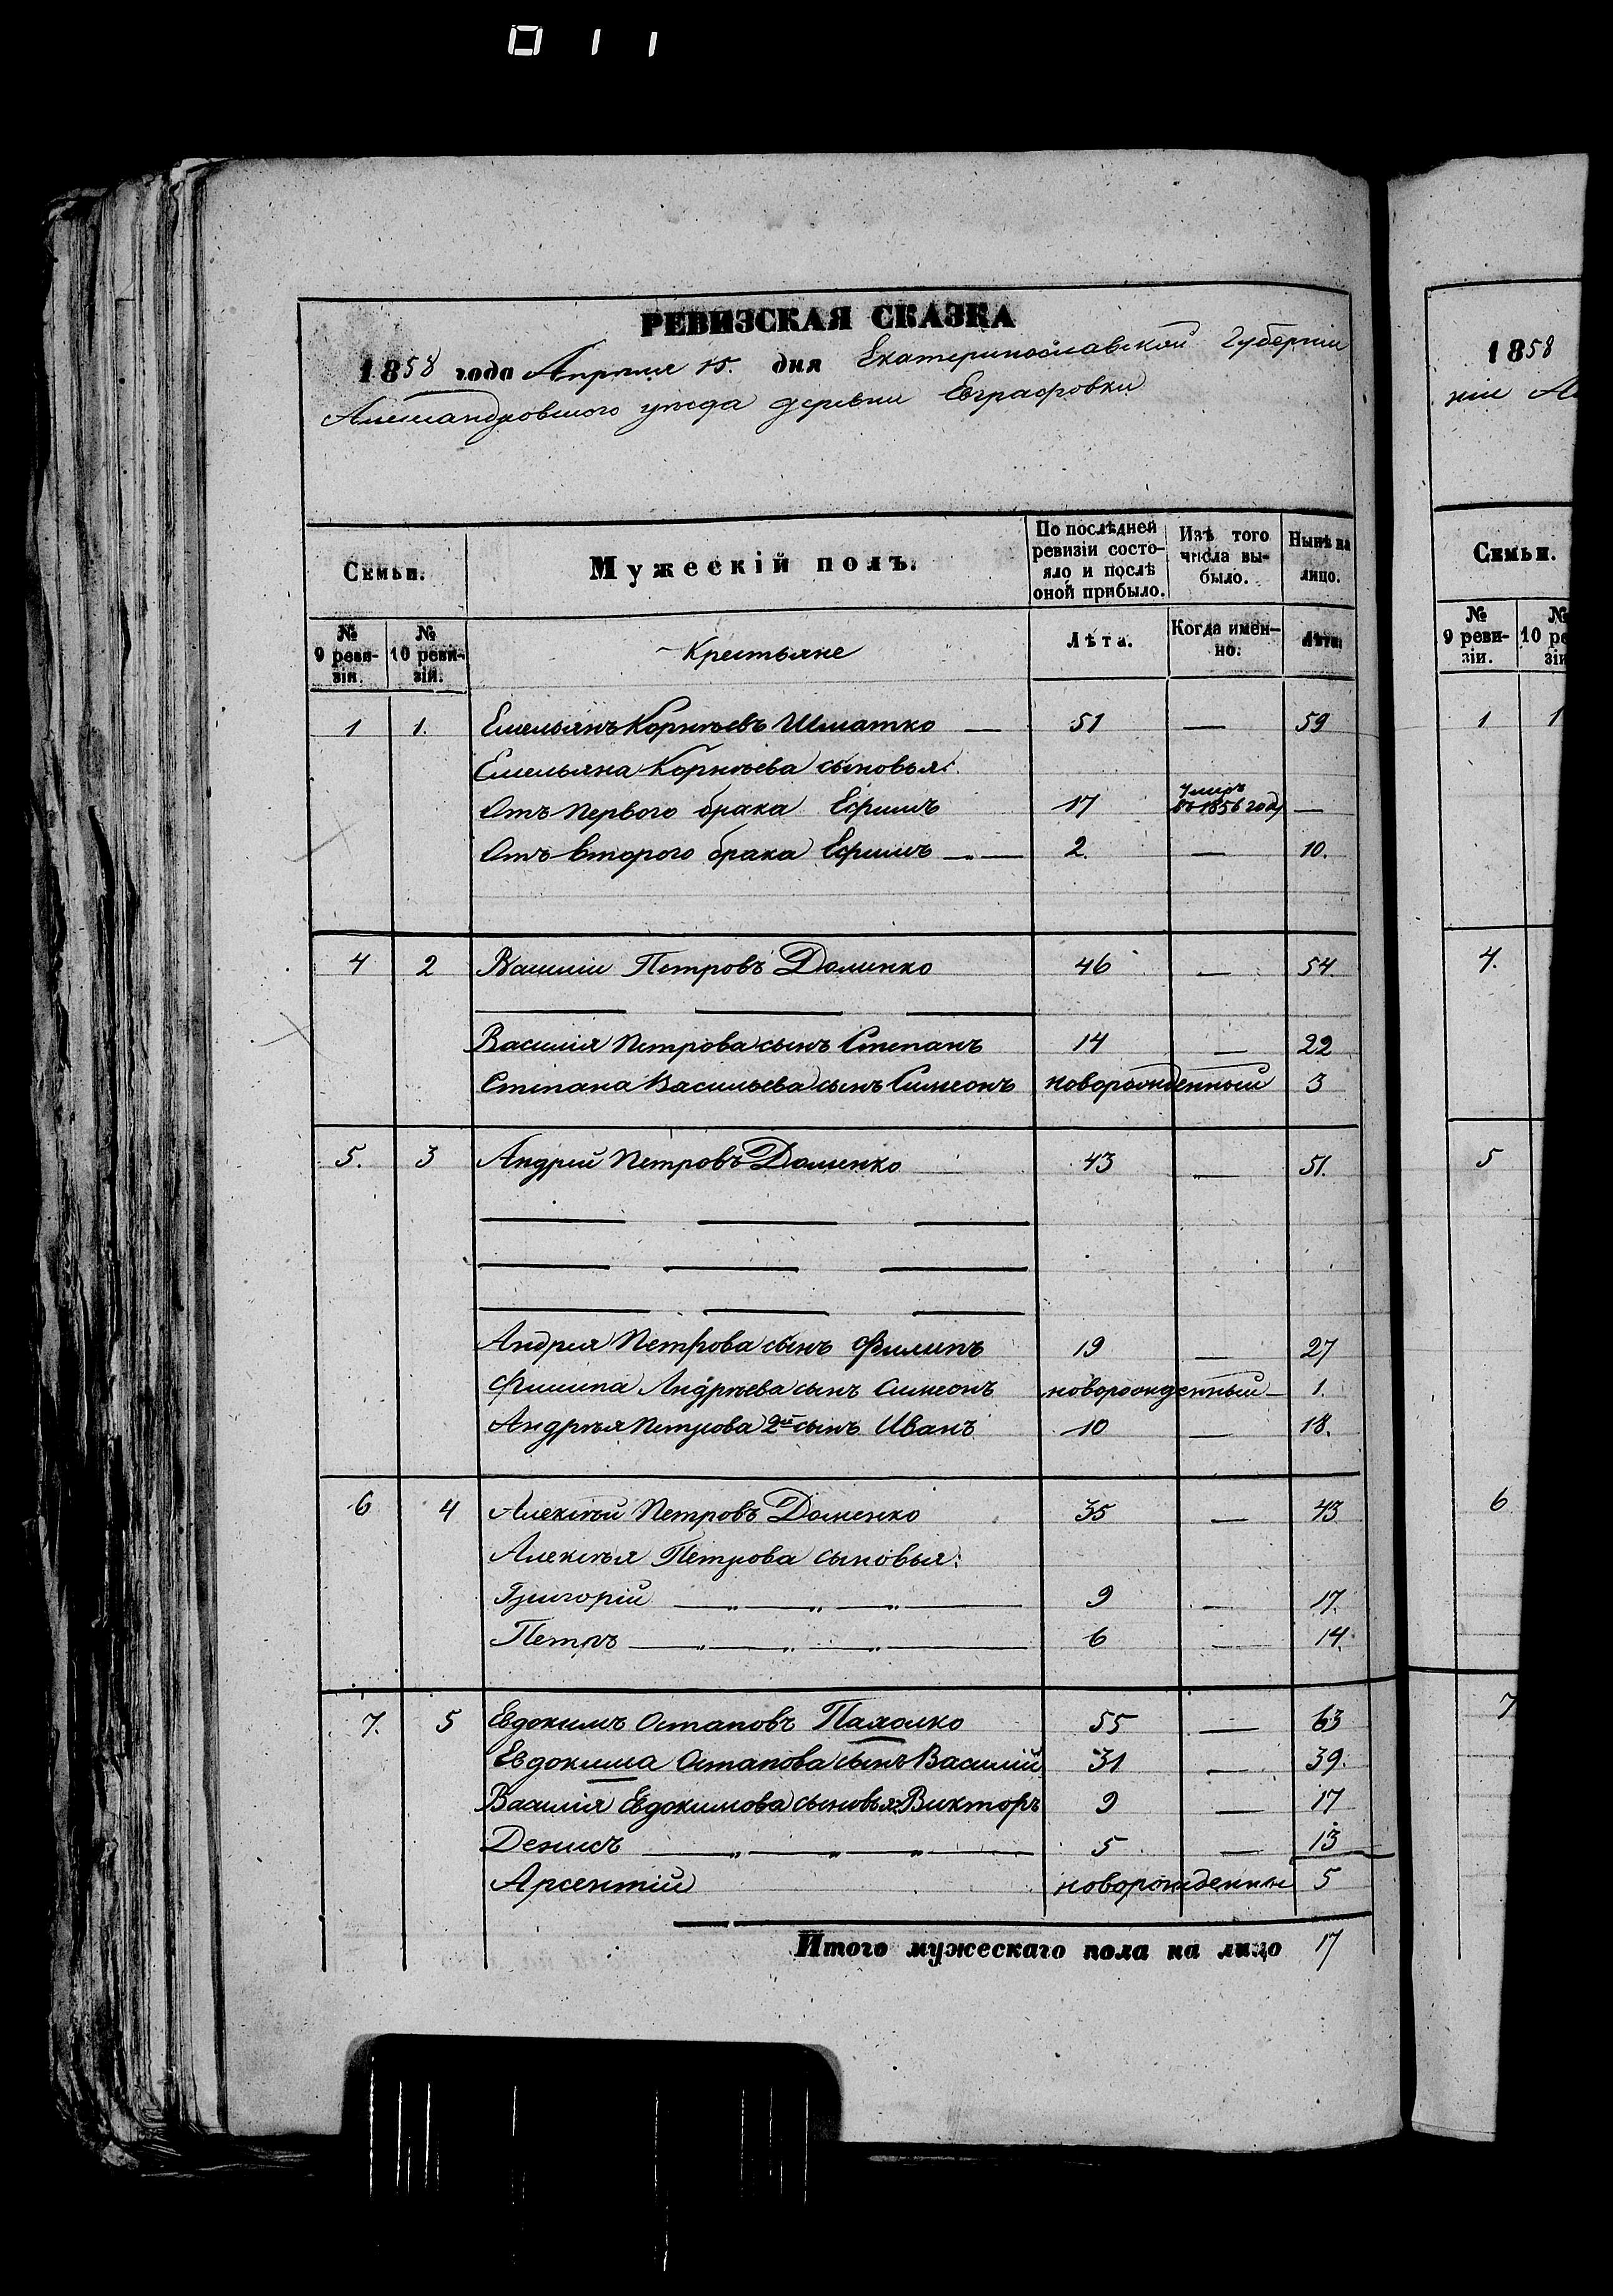 011
РЕВИЗСКАЯ СКАЗКА
1858 года Апреля 15. дня Екатеринославской Губерніи
Александровского уѣзда деревни Евграфовки
Семьи.
Мужескій полъ.
По послѣдней ревизіи состояло и послѣ оной прибыло.
Изъ того числа выбыло.
Нынѣ на лицо.
№ 9 ревизіи.
№ 10 ревизіи.
Крестьяне
Лѣта.
Когда именно.
Лѣта.
1 1. Емельянъ Корнѣевъ Шматко — 51 — 59
Емельяна Корнѣева сыновья:
Отъ первого брака Ефимъ 17 умеръ въ 1856 году —
Отъ второго брака Ефимъ — 2. — 10.
4 2 Василій Петровъ Доменко 46 — 54
Василія Петрова сынъ Степанъ 14 — 22
Степана Васильева сынъ Симеонъ новорожденный 3
5. 3 Андрей Петровъ Доменко 43 — 51.
Андрея Петрова сынъ Филипъ 19 — 27
Филипа Андрѣева сынъ Симеонъ новорожденный — 1.
Андрѣя Петрова 2й сынъ Иванъ 10 — 18.
6 4 Алексѣй Петровъ Доменко 35 — 43
Алексѣя Петрова сыновья:
Григорій — „ — „ — „ — 9 — 17.
Петръ — „ — „ — „ — 6 — 14.
7. 5 Евдокимъ Остаповъ 55 — 63
Евдокима Остапова сынъ Василій 31 — 39.
Василія Евдокимова сыновья: Викторъ 9 — 17
Денисъ — „ — „ — „ — 5 — 13
Арсентій новорожденны 5
Итого мужескаго пола на лицо 17
1858
ніи
Семьи.
№ 9 ревизіи.
1 1
4.
5
6
7